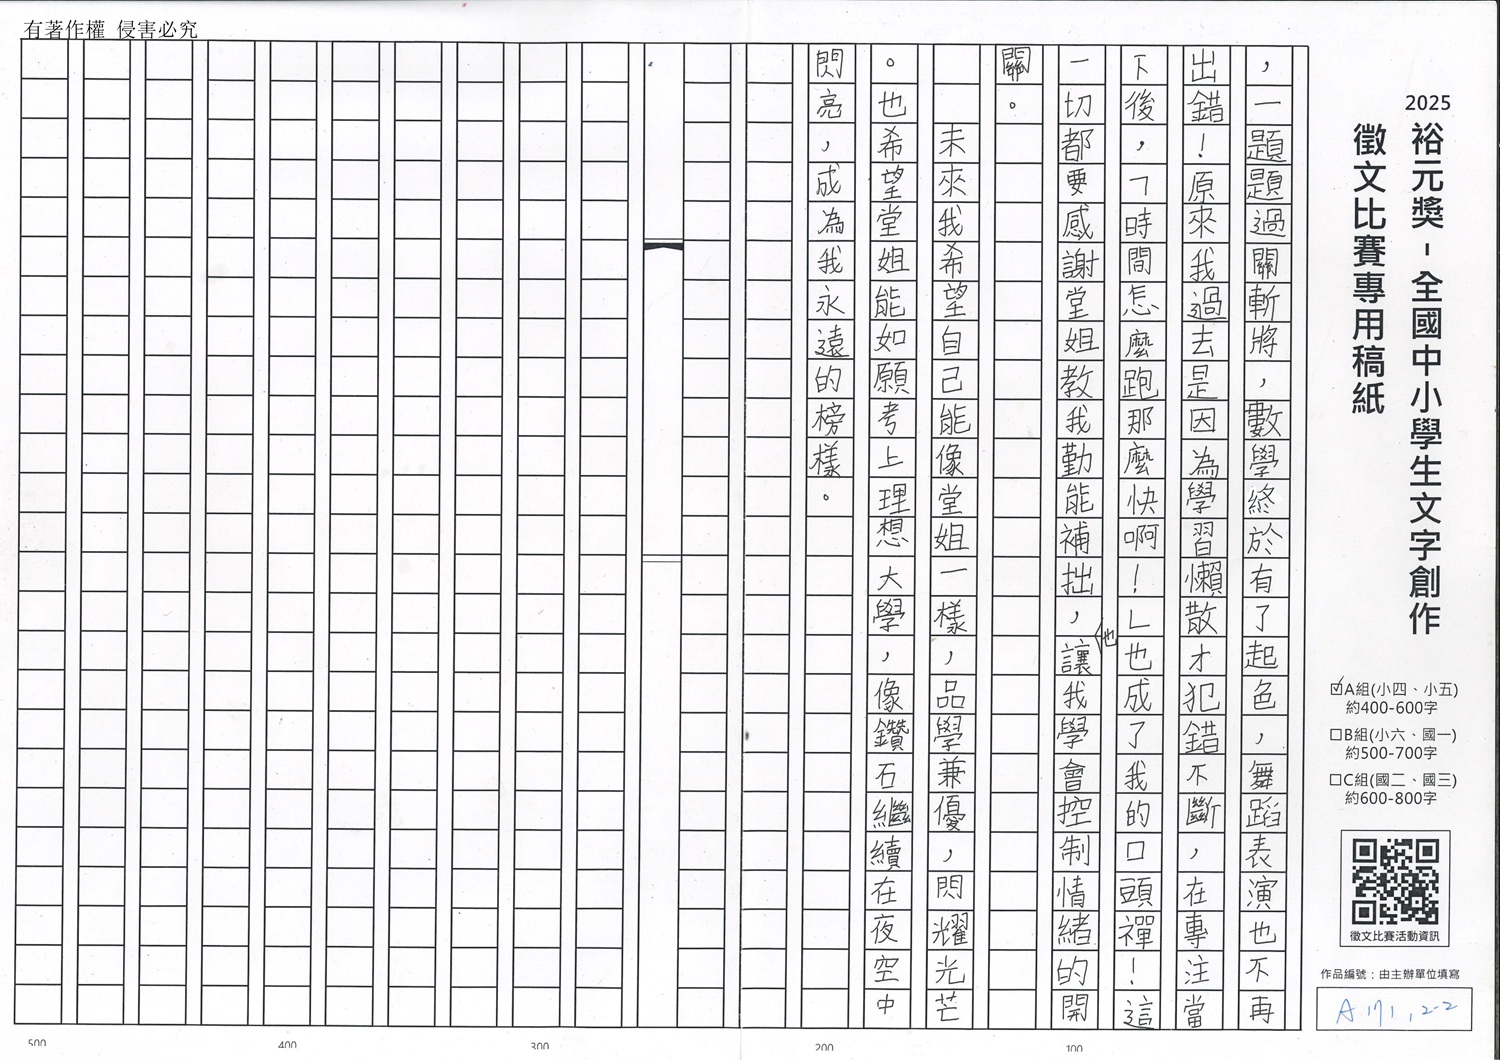 有著作權 侵害必究
2025
裕元獎-全國中小學生文字創作
徵文比賽專用稿紙
☑A組(小四、小五)
約400-600字
□B組(小六、國一)
約500-700字
□C組(國二、國三)
約600-800字
徵文比賽活動資訊
作品編號：由主辦單位填寫
A171,2-2
，一題題過關斬將，數學終於有了起色，舞蹈表演也不再
出錯！原來我過去是因為學習懶散才犯錯不斷，在專注當
下後，「時間怎麼跑那麼快啊！」也成了我的口頭禪！這
一切都要感謝堂姐教我勤能補拙，也讓我學會控制情緒的開
關。
未來我希望自己能像堂姐一樣，品學兼優，閃耀光芒
。也希望堂姐能如願考上理想大學，像鑽石繼續在夜空中
閃亮，成為我永遠的榜樣。
500
400
300
200
100